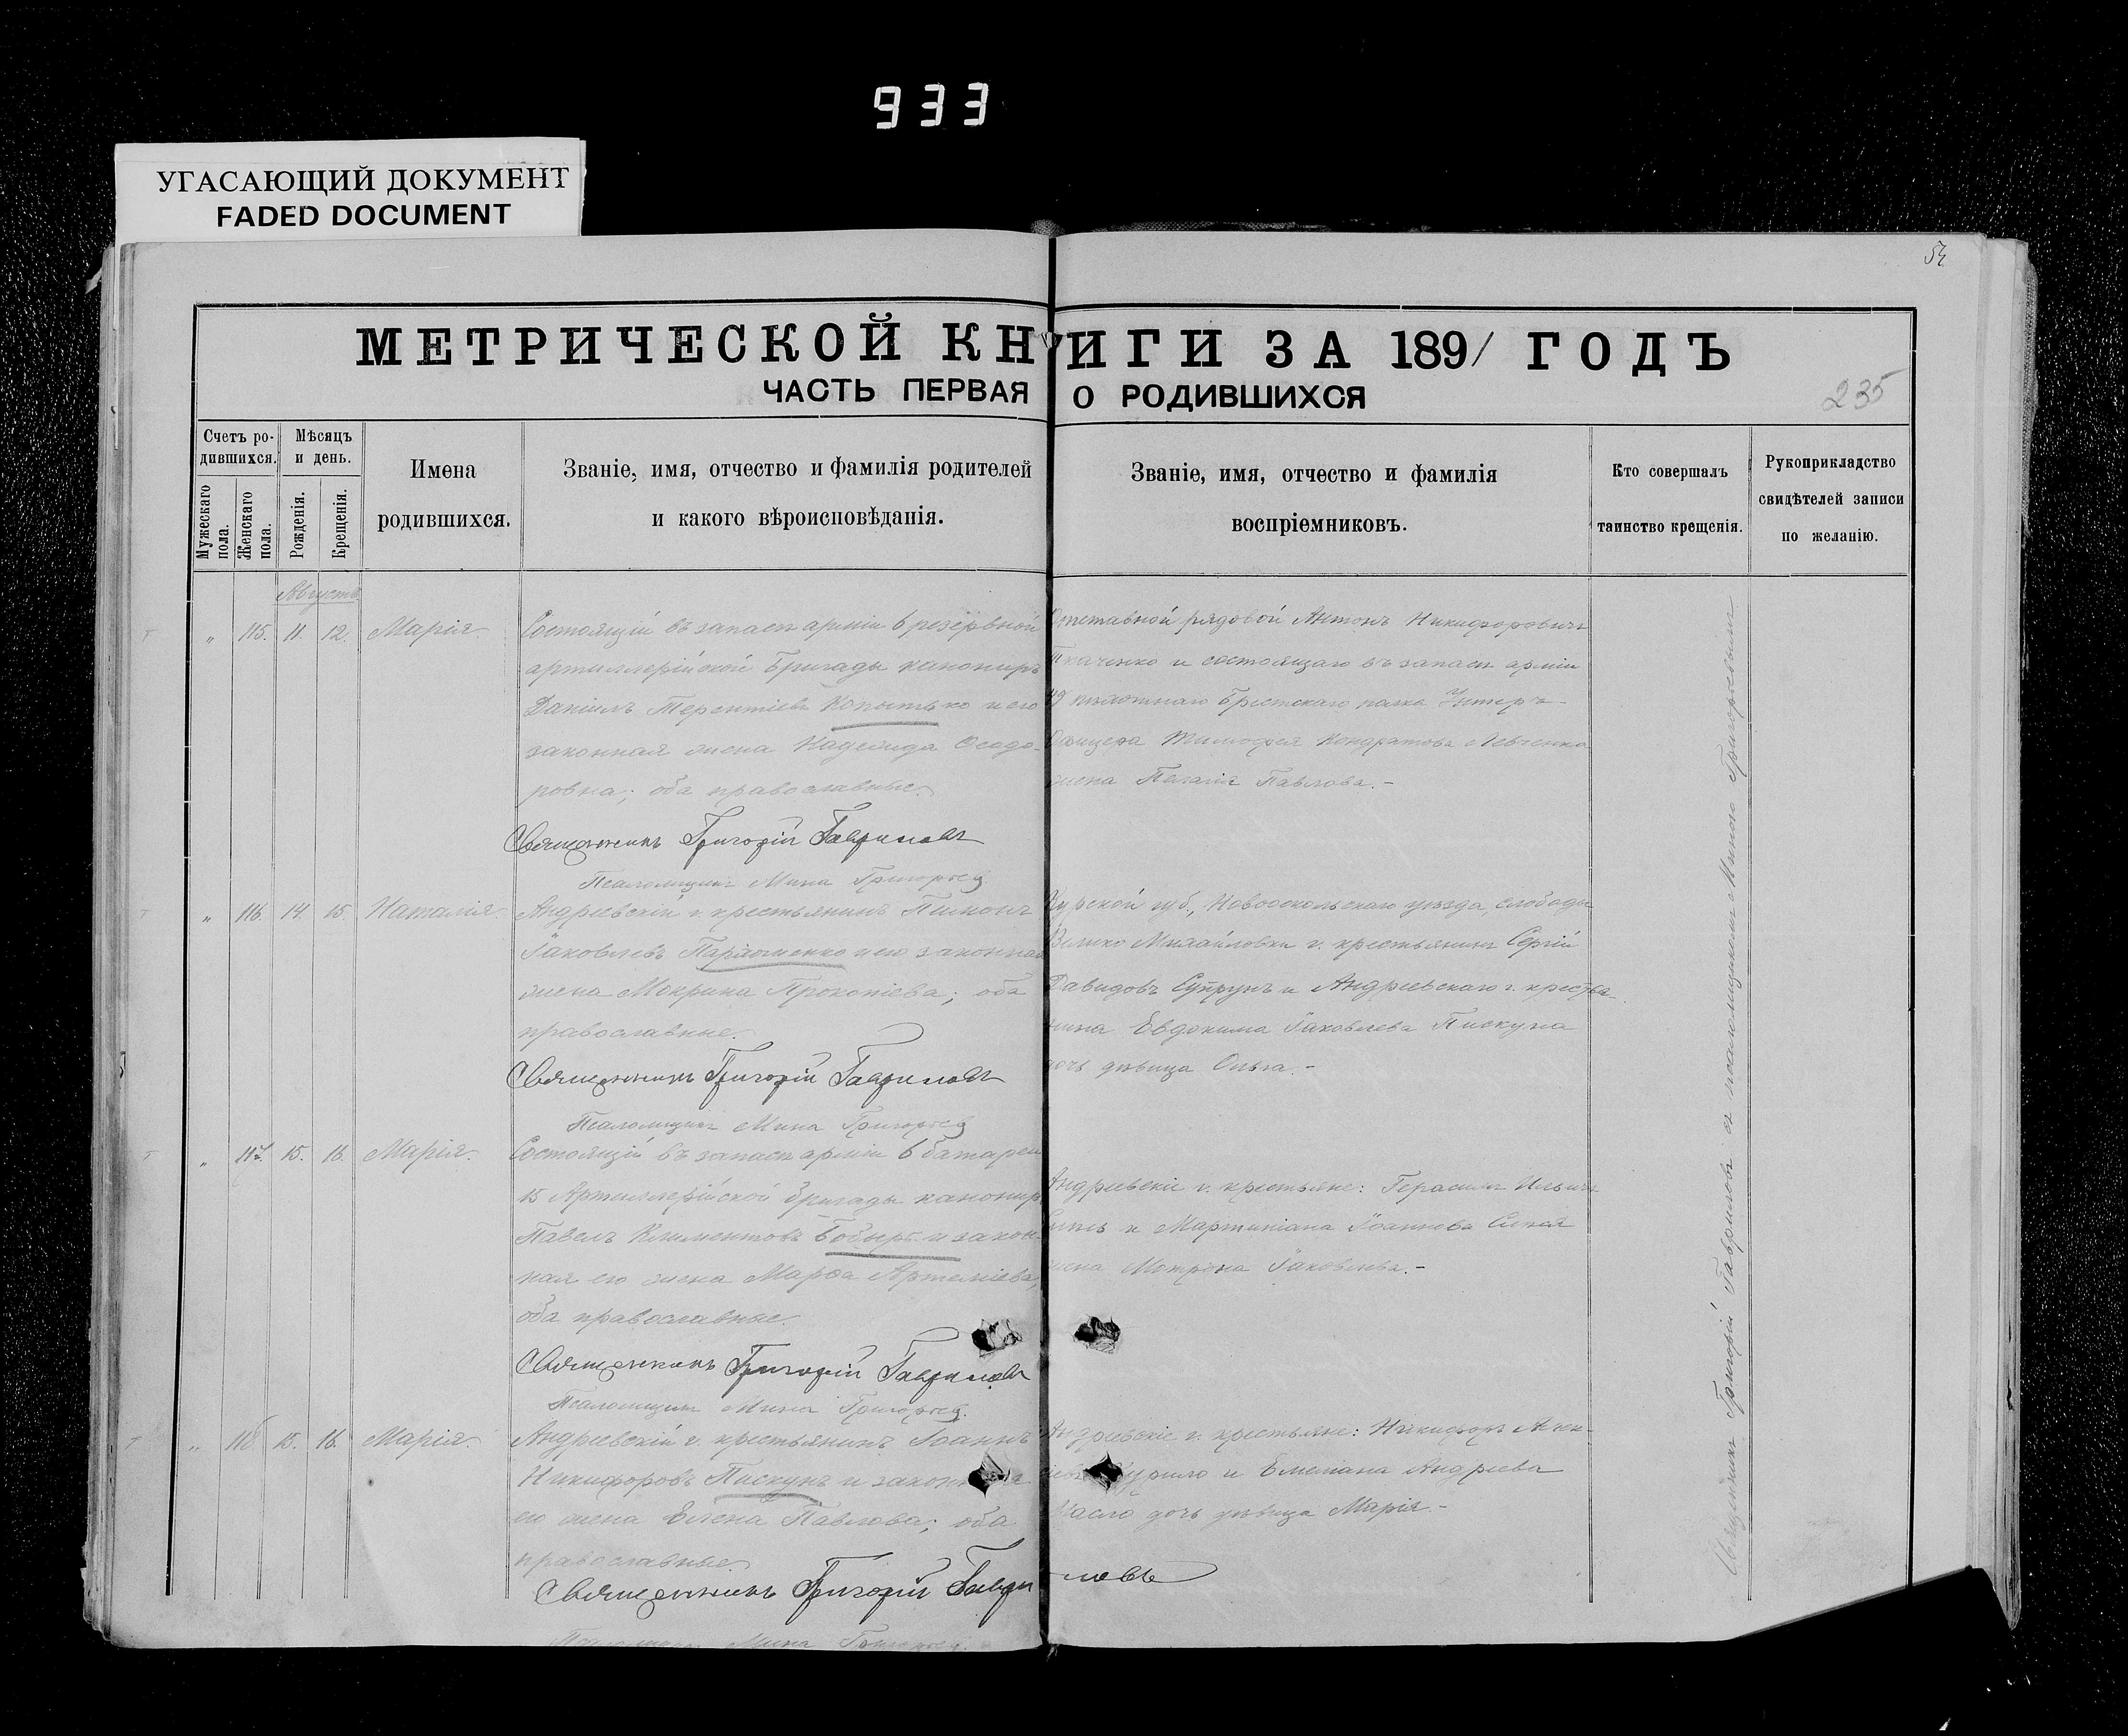 933
УГАСАЮЩИЙ ДОКУМЕНТ
FADED DOCUMENT
54
МЕТРИЧЕСКОЙ КНИГИ ЗА 1891 ГОДЪ
ЧАСТЬ ПЕРВАЯ О РОДИВШИХСЯ
235
Счетъ ро-
дившихся.
Мужескаго
пола.
Женскаго
пола.
Мѣсяцъ
и день.
Рожденія.
Крещенія.
Имена
родившихся.
Званіе, имя, отчество и фамилія родителей
и какого вѣроисповѣданія.
Званіе, имя, отчество и фамилія
воспріемниковъ.
Кто совершалъ
таинство крещенія.
Рукоприкладство
свидѣтелей записи
по желанію.
Августъ
" 115. 11. 12. Марія.
Состоящій въ запасѣ арміи 6 резервной
артиллерійской бригады канониръ
Даніилъ Терентіевъ Копытько и его
законная жена Надежда Ѳеодо-
ровна; оба православные.
Священникъ Григорій Гавриловъ
Псаломщикъ Мина Григорьев
Отставной рядовой Антонъ Никифоровичъ
Ткаченко и состоящаго въ запасѣ арміи
49 пѣхотнаго Брестскаго полка Унтеръ-
Офицера Тимофея Кондратова Левченко
жена Пелагія Павлова.-
" 116. 14. 15. Наталія.
Андреевскій г. крестьянинъ Пимонъ
Іаковлевъ Пархоменко и его законная
жена Мокрина Прокопіева; оба
православные.
Священникъ Григорій Гавриловъ
Псаломщикъ Мина Григорьев
Курской губ., Новооскольскаго уѣзда, слободы
Велико Михайловки г. крестьянинъ Сергій
Давидовъ Супрунъ и Андреевскаго г. крестья-
нина Евдокима Іаковлева Пискуна
дочь дѣвица Ольга.-
" 117. 15. 16. Марія.
Состоящій въ запасѣ арміи 6 батареи
15 Артиллерійской бригады канониръ
Павелъ Климентовъ Бобырь и закон-
ная его жена Марѳа Артеміева,
оба православные.
Священникъ Григорій Гавриловъ
Псаломщикъ Мина Григорьев.
Андреевскіе г. крестьяне: Герасимъ Ильичъ
и Мартиніана Іоаннова
жена Мотрона Іаковлева.-
" 118 15. 16. Марія.
Андреевскій г. крестьянинъ Іоаннъ
Никифоровъ Пискунъ и законная
его жена Елена Павлова; оба
православные.
Священникъ Григорій Гавриловъ
Псаломщикъ Мина Григорьев.
Андреевскіе г. крестьяне: Никифоръ
и Емеліана Андреева
Масло дочь дѣвица Марія.-
Священникъ Григорій Гавриловъ съ псаломщикомъ Миною Григорьевымъ